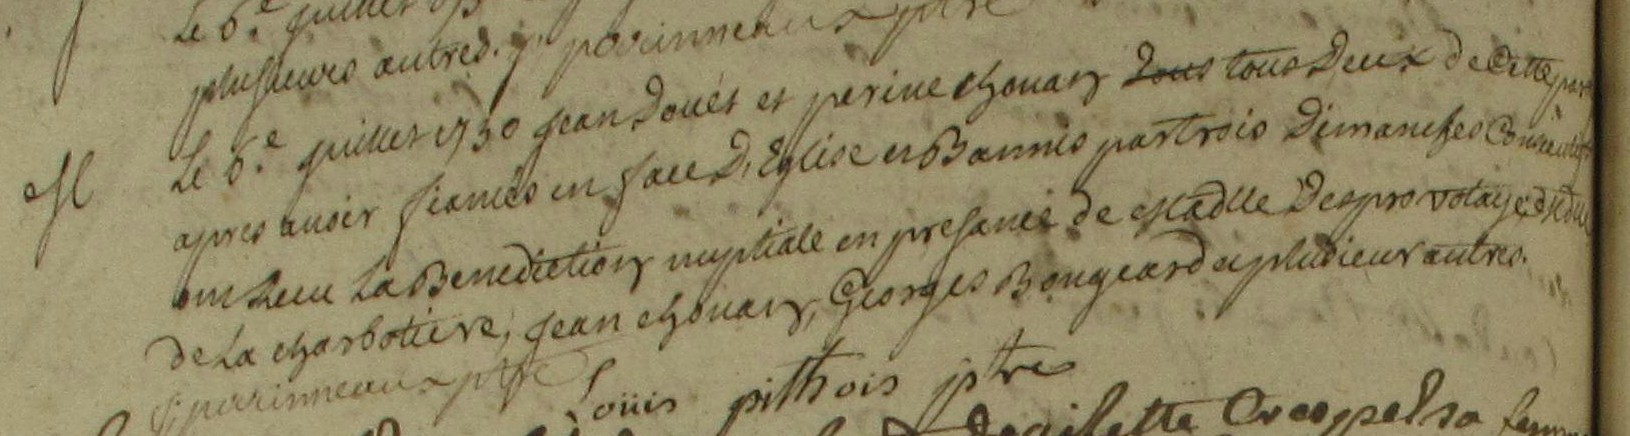 Le 6.e juillet
plusieurs autres. j. poirinneaux ptre
M
Le 6.e juillet 1730 jean Doüét et perine chouan tous deux de Cette
apres avoir fiancés en face D'Eglise et Bannis par trois Dimanches Consecutifs
ont Receu La Benediction nuptiale en presance de Madlle Desprovotaye,
De La charbotiere, jean chouan, Georges Bougeard et plusieur autres.
j. poirinneaux ptre
Loüis pithois ptre
Crespel sa femme